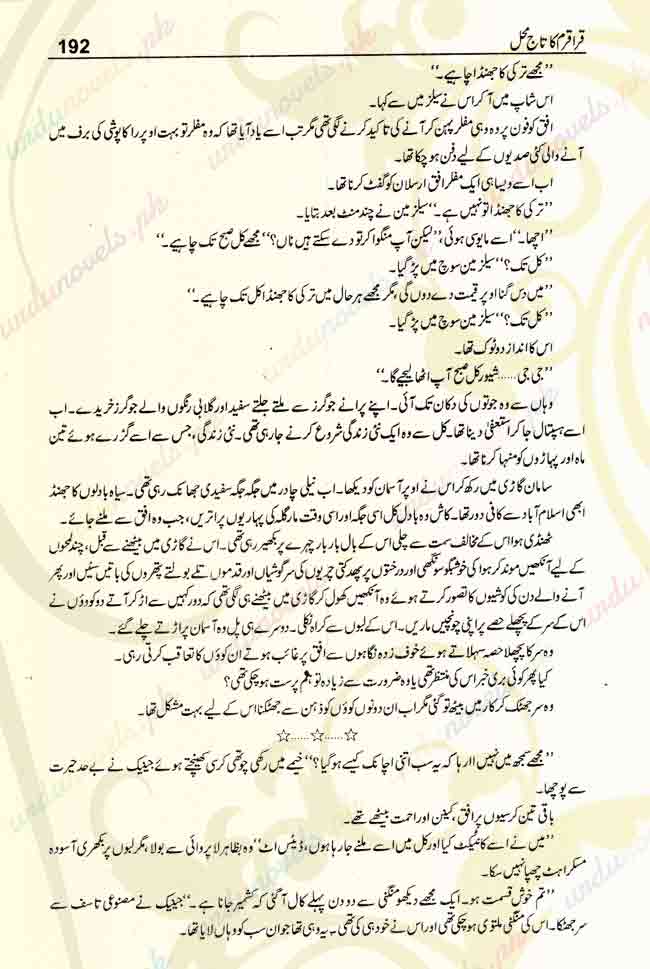 192
قراقرم کا تاج محل
’’مجھے ترکی کا جھنڈا چاہیے۔‘‘
اس شاپ میں آ کر اس نے سیلز مین سے کہا۔
افق کو فون پر وہ وہی مفلر پہن کر آنے کی تاکید کرنے لگی تھی مگر تب اسے یاد آیا تھا کہ وہ مفلر تو بہت اوپر راکاپوشی کی برف میں
آنے والی کئی صدیوں کے لیے دفن ہو چکا تھا۔
اب اسے ویسا ہی ایک مفلر افق ارسلان کو گفٹ کرنا تھا۔
’’ترکی کا جھنڈا تو نہیں ہے۔‘‘ سیلز مین نے چند منٹ بعد بتایا۔
’’اچھا۔‘‘ اسے مایوسی ہوئی، ’’لیکن آپ منگوا کر تو دے سکتے ہیں ناں؟‘‘ مجھے کل صبح تک چاہیے۔‘‘
’’کل تک؟‘‘ سیلز مین سوچ میں پڑ گیا۔
’’میں دس گنا اوپر قیمت دے دوں گی، مگر مجھے ہر حال میں ترکی کا جھنڈا کل تک چاہیے۔‘‘
’’کل تک؟‘‘ سیلز مین سوچ میں پڑ گیا۔
اس کا انداز دو ٹوک تھا۔
’’جی جی...... شیور کل صبح آپ اٹھا لیجیے گا۔‘‘
وہاں سے وہ جوتوں کی دکان تک آئی۔ اپنے پرانے جوگرز سے ملتے جلتے سفید اور گلابی رنگوں والے جوگرز خریدے۔ اب
اسے ہسپتال جا کر استعفیٰ دینا تھا۔ کل سے وہ ایک نئی زندگی شروع کرنے جا رہی تھی۔ نئی زندگی، جس سے اسے گزرے ہوئے تین
ماہ اور پہاڑوں کو منہا کرنا تھا۔
سامان گاڑی میں رکھ کر اس نے اوپر آسمان کو دیکھا۔ اب نیلی چادر میں جگہ جگہ سفیدی جھانک رہی تھی۔ سیاہ بادلوں کا جھنڈ
ابھی اسلام آباد سے کافی دور تھا۔ کاش وہ بادل کل اسی جگہ اور اسی وقت مارگلہ کی پہاڑیوں پر اتریں، جب وہ افق سے ملنے جائے۔
ٹھنڈی ہوا اس کے مخالف سمت سے چلی اس کے بال بار بار چہرے پر بکھیر رہی تھی۔ اس نے گاڑی میں بیٹھنے سے قبل، چند لمحوں
کے لیے آنکھیں موند کر ہوا کی خوشبو سونگھی اور درختوں پر پھدکتی چڑیوں کی سرگوشیاں اور قدموں تلے بولتے پتھروں کی باتیں سنیں اور پھر
آنے والے دن کی خوشیوں کا تصور کرتے ہوئے وہ آنکھیں کھول کر گاڑی میں بیٹھنے ہی لگی تھی کہ دور کہیں سے اڑ کر آتے دو کوؤں نے
اس کے سر کے پچھلے حصے پر اپنی چونچیں ماریں۔ اس کے لبوں سے کراہ نکلی۔ دوسرے ہی پل وہ آسمان پر اڑتے چلے گئے۔
وہ سر کا پچھلا حصہ سہلاتے ہوئے خوف زدہ نگاہوں سے افق پر غائب ہوتے ان کوؤں کا تعاقب کرتی رہی۔
کیا پھر کوئی بری خبر اس کی منتظر تھی یا وہ ضرورت سے زیادہ توہم پرست ہو چکی تھی؟
وہ سر جھٹک کر کار میں بیٹھ تو گئی مگر اب ان دونوں کوؤں کو ذہن سے جھٹکنا اس کے لیے بہت مشکل تھا۔
☆......☆......☆
’’مجھے سمجھ میں نہیں اارہا کہ یہ سب اتنی اچانک کیسے ہو گیا؟‘‘ خیمے میں رکھی چوتھی کرسی کھینچتے ہوئے جینیک نے بے حد حیرت
سے پوچھا۔
باقی تین کرسیوں پر افق، کینن اور احمت بیٹھے تھے۔
’’میں نے اسے کانٹیکٹ کیا اور کل میں اسے ملنے جا رہا ہوں، ڈیٹس اٹ‘‘ وہ بظاہر لاپروائی سے بولا، مگر لبوں پر بکھری آسودہ
مسکراہٹ چھپا نہیں سکا۔
’’تم خوش قسمت ہو۔ ایک مجھے دیکھو منگنی سے دو دن پہلے کال آ گئی کہ کشمیر جانا ہے۔‘‘ جینیک نے مصنوعی تاسف سے
سر جھٹکا۔ اس کی منگنی ملتوی ہو چکی تھی اور اس نے خود ہی کی تھی۔ یہ وہی تھا جو ان سب کو وہاں لایا تھا۔
urdunovels.pk